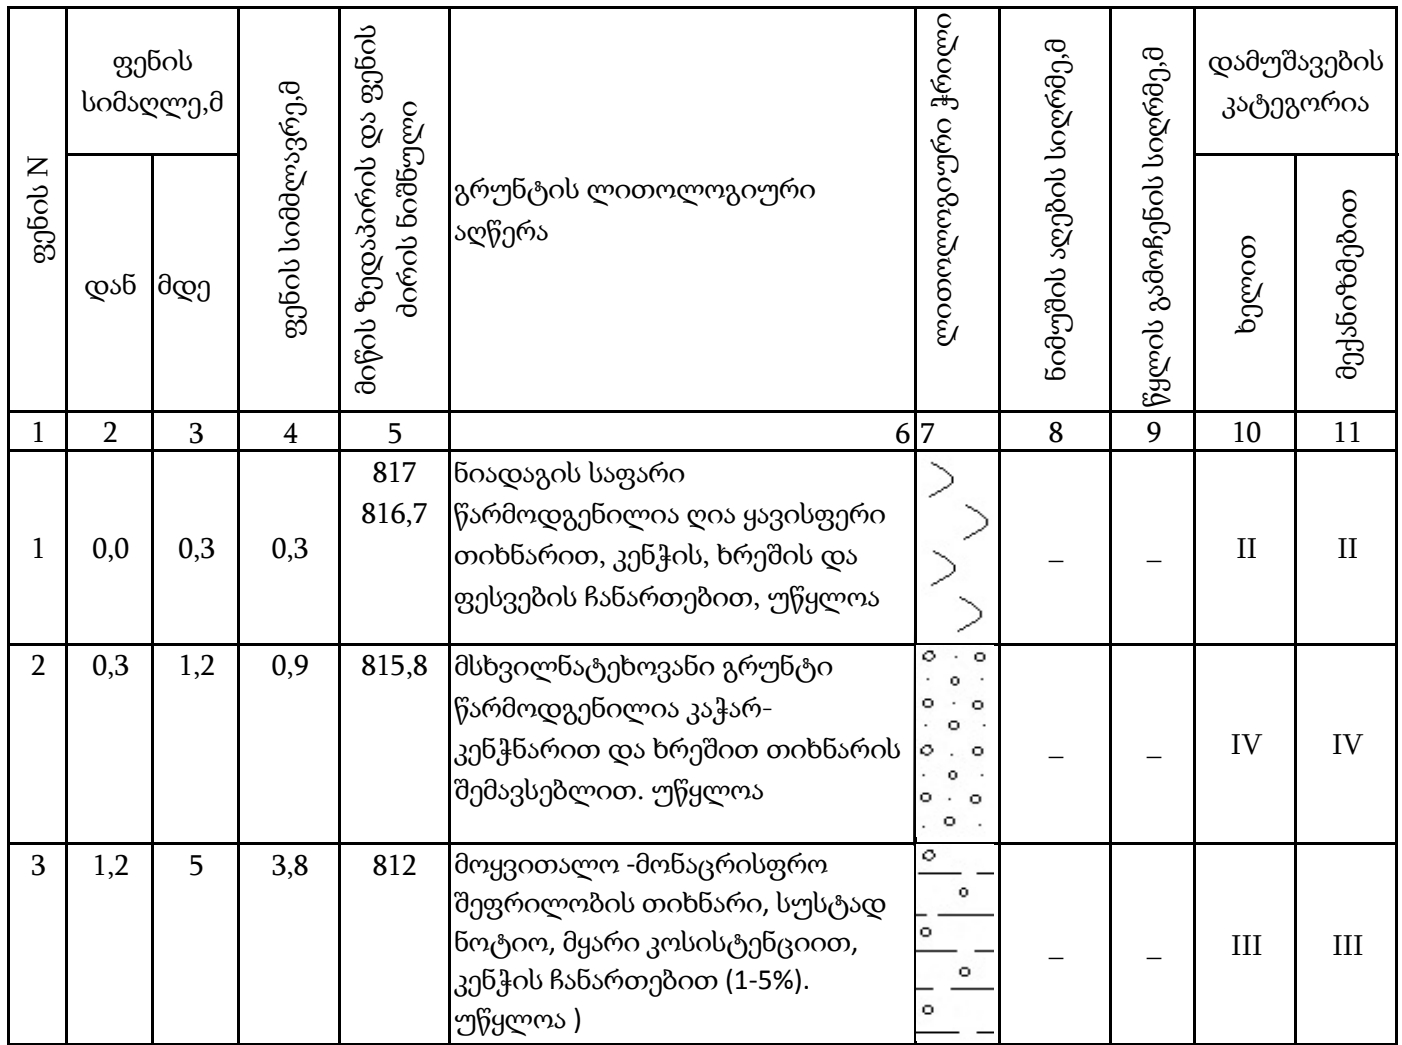 ფენის N
ფენის
სიმაღლე,მ
დან
მდე
ფენის სიმძლავრე,მ
მიწის ზედაპირის და ფენის
ძირის ნიშნული
გრუნტის ლითოლოგიური
აღწერა
ლითოლოგიური ჭრილი
ნიმუშის აღების სიღრმე,მ
წყლის გამოჩენის სიღრმე,მ
დამუშავების
კატეგორია
ხელით
მექანიზმებით
1 2 3 4 5 6 7 8 9 10 11
1 0,0 0,3 0,3
817
816,7
ნიადაგის საფარი
წარმოდგენილია ღია ყავისფერი
თიხნარით, კენჭის, ხრეშის და
ფესვების ჩანართებით, უწყლოა
– – II II
2 0,3 1,2 0,9 815,8
მსხვილნატეხოვანი გრუნტი
წარმოდგენილია კაჭარ-
კენჭნარით და ხრეშით თიხნარის
შემავსებლით. უწყლოა
– – IV IV
3 1,2 5 3,8 812
მოყვითალო -მონაცრისფრო
შეფრილობის თიხნარი, სუსტად
ნოტიო, მყარი კოსისტენციით,
კენჭის ჩანართებით (1-5%).
უწყლოა )
– – III III